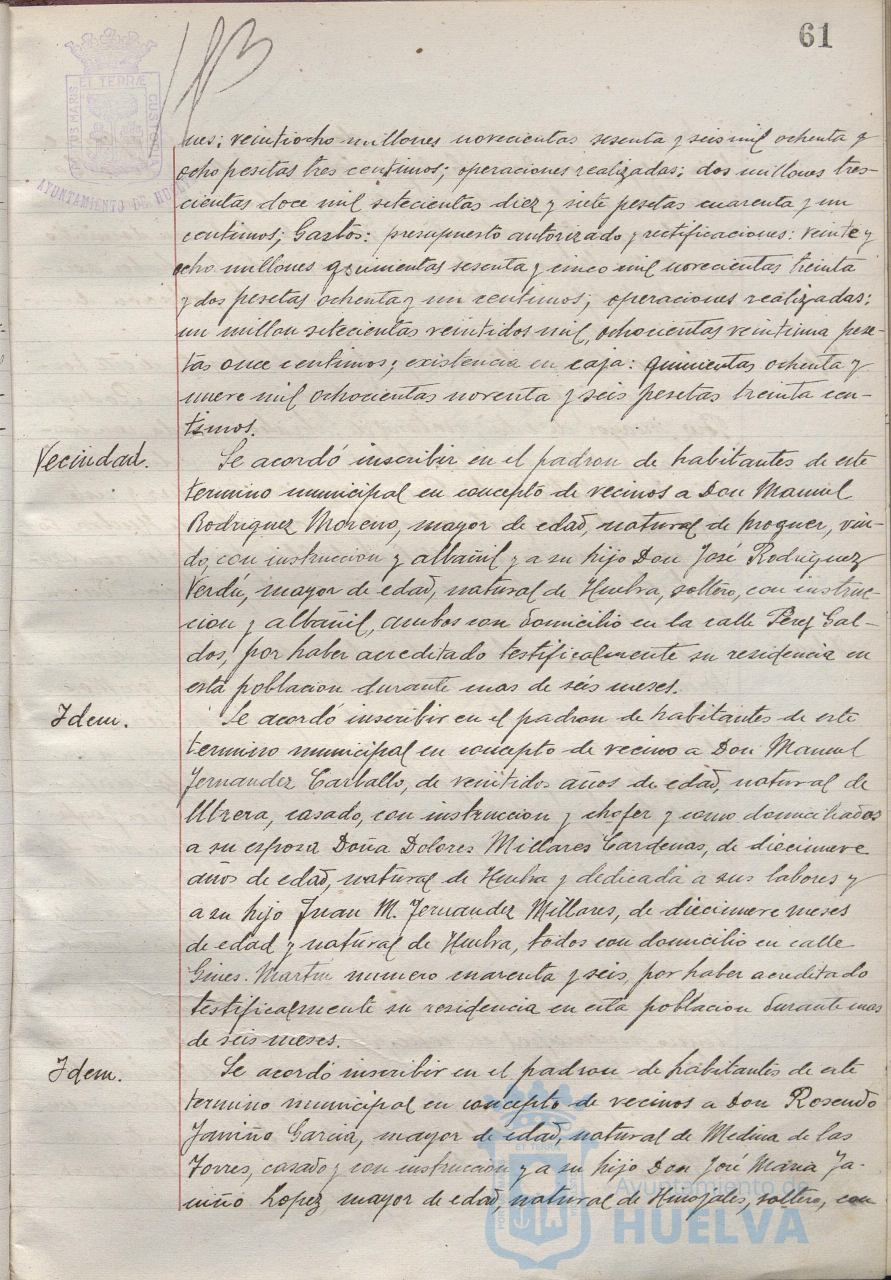 61
183
PORTUS MARIS ET TERRÆ CUSTODIA
AYUNTAMIENTO DE HUELVA
nes; veintiocho millones novecientas sesenta y seis mil ochenta y
ocho pesetas tres centimos; operaciones realizadas: dos millones tres-
cientas doce mil setecientas diez y siete pesetas cuarenta y un
centimos; Gastos: presupuesto autorizado y rectificaciones: veinte y
ocho millones quinientas sesenta y cinco mil novecientas treinta
y dos pesetas ochenta y un centimos; operaciones realizadas:
un millon setecientas veintidos mil, ochocientas veintiuna pese-
tas once centimos y existencia en caja: quinientas ochenta y
nueve mil ochocientas noventa y seis pesetas treinta cen-
timos.
Vecindad. Se acordó inscribir en el padron de habitantes de este
termino municipal en concepto de vecinos a Don Manuel
Rodriguez Moreno, mayor de edad, natural de Moguer, viu-
do, con instruccion y albañil y a su hijo Don José Rodriguez
Verdú, mayor de edad, natural de Huelva, soltero, con instruc-
cion y albañil, ambos con domicilio en la calle Pérez Gal-
dos, por haber acreditado testificalmente su residencia en
esta poblacion durante mas de seis meses.
Idem. Se acordó inscribir en el padron de habitantes de este
termino municipal en concepto de vecino a Don Manuel
Fernandez Carballo, de veintidos años de edad, natural de
Utrera, casado, con instruccion y chofer y como domiciliados
a su esposa Doña Dolores Millares Cardenas, de diecinueve
años de edad, natural de Huelva y dedicada a sus labores y
a su hijo Juan M. Fernandez Millares, de diecinueve meses
de edad y natural de Huelva, todos con domicilio en calle
Gines Martin numero cuarenta y seis, por haber acreditado
testificalmente su residencia en esta poblacion durante mas
de seis meses.
Idem. Se acordó inscribir en el padron de habitantes de este
termino municipal en concepto de vecinos a Don Rosendo
Jariño Garcia, mayor de edad, natural de Medina de las
Torres, casado y con instruccion y a su hijo Don José Maria Ja-
riño Lopez mayor de edad, natural de Hinojales, soltero, con
Ayuntamiento de
HUELVA